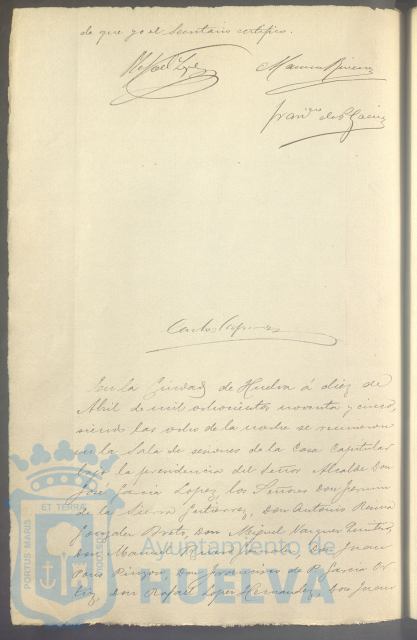 de que yo el Secretario certifico.
Rafael López
Manuel Rivera
Franco de P. García
Carlos
En la Ciudad de Huelva á diez de
Abril de mil ochocientos noventa y cinco,
siendo las ocho de la noche se reunieron
en la Sala de sesiones de la Casa Capitular
bajo la presidencia del Señor Alcalde Don
José García López, los Señores Don
de la Sierra Gutierrez, Don Antonio
González Don Miguel Vazquez
Don Manuel Don Juan
Pinzón Don Francisco de P. García Or
tiz, Don Rafael López Hernández, Don Juan
Ayuntamiento de
HUELVA
PORTUS MARIS
ET TERRÆ